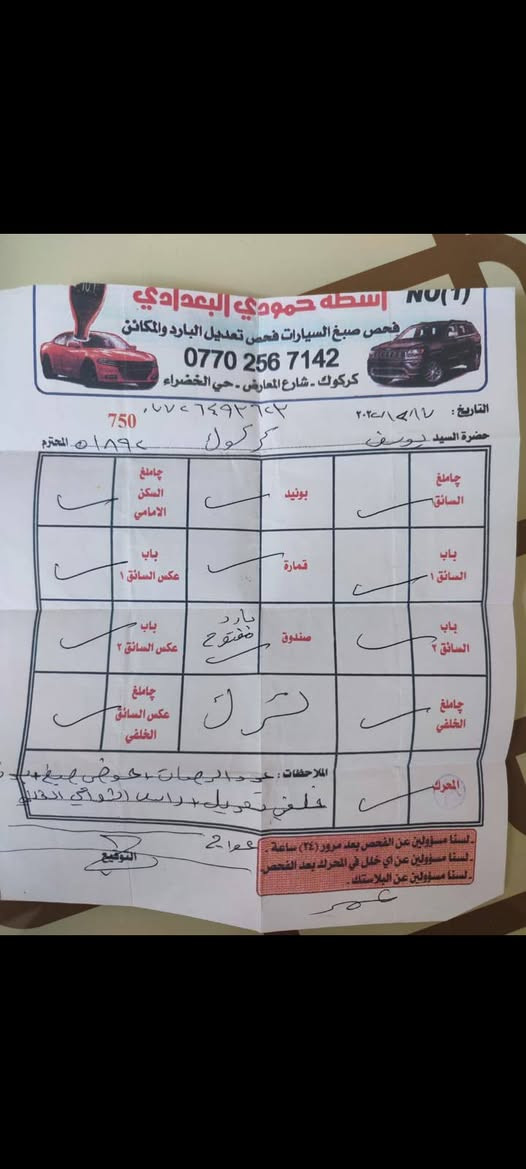 NO(1) اسطه حمودي البغدادي
فحص صبغ السيارات فحص تعديل البارد والمكائن
0770 256 7142
كركوك - شارع المعارض - حي الخضراء
التاريخ:
750
حضرة السيد يوسف كركوك ٥١٨٩٢ المحترم
جاملغ السائق
بونيد
جاملغ السكن الامامي
باب السائق ١
قمارة
باب عكس السائق ١
باب السائق ٢
صندوق بارد مفتوح
باب عكس السائق ٢
جاملغ الخلفي
جاملغ عكس السائق الخلفي
المحرك
الملاحظات:
خلفي تعديل + راس
- لسنا مسؤولين عن الفحص بعد مرور (٢٤) ساعة
- لسنا مسؤولين عن اي خلل في المحرك بعد الفحص.
- لسنا مسؤولين عن البلاستك.
التوقيع
عمر